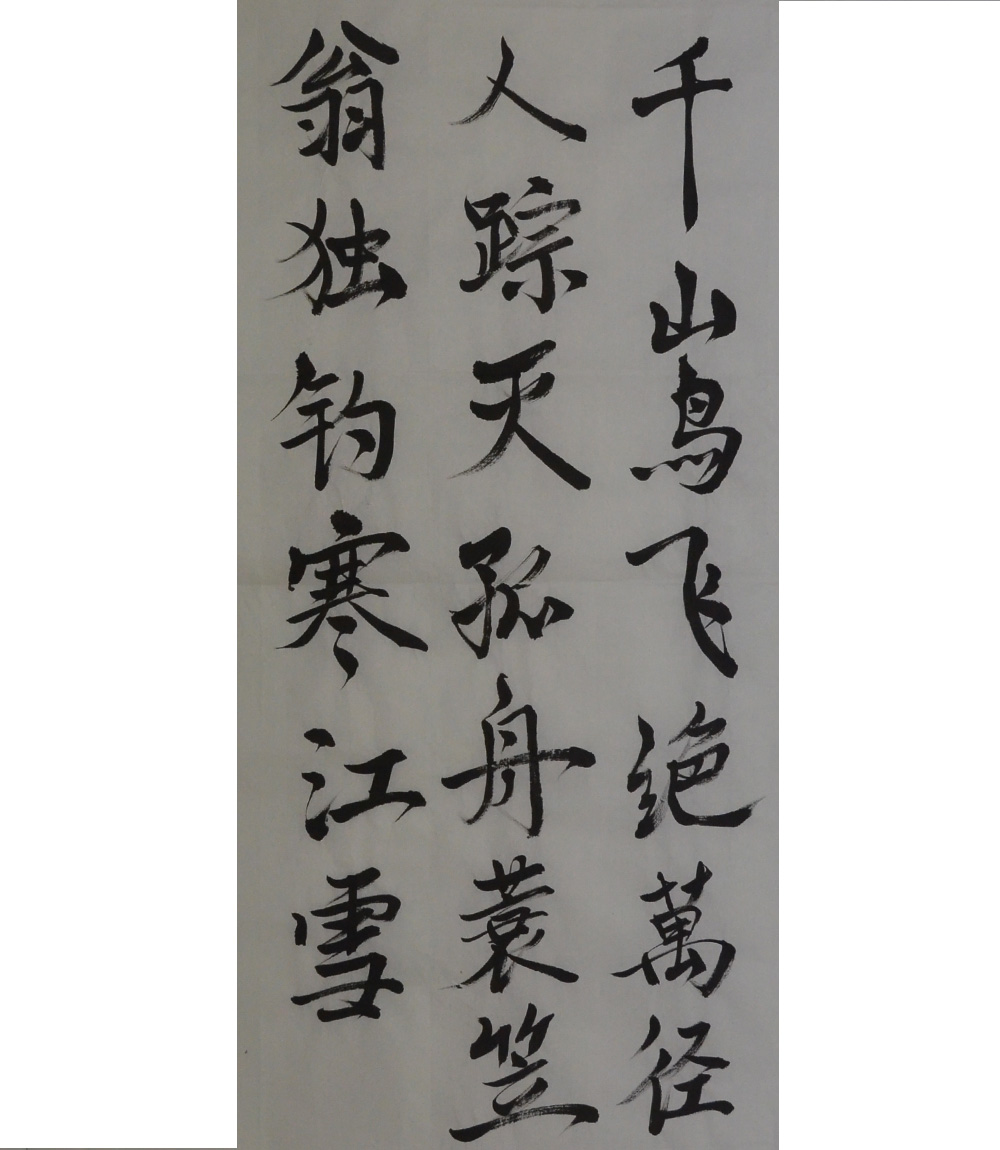 千山鸟飞绝萬径
人踪灭孤舟蓑笠
翁独钓寒江雪